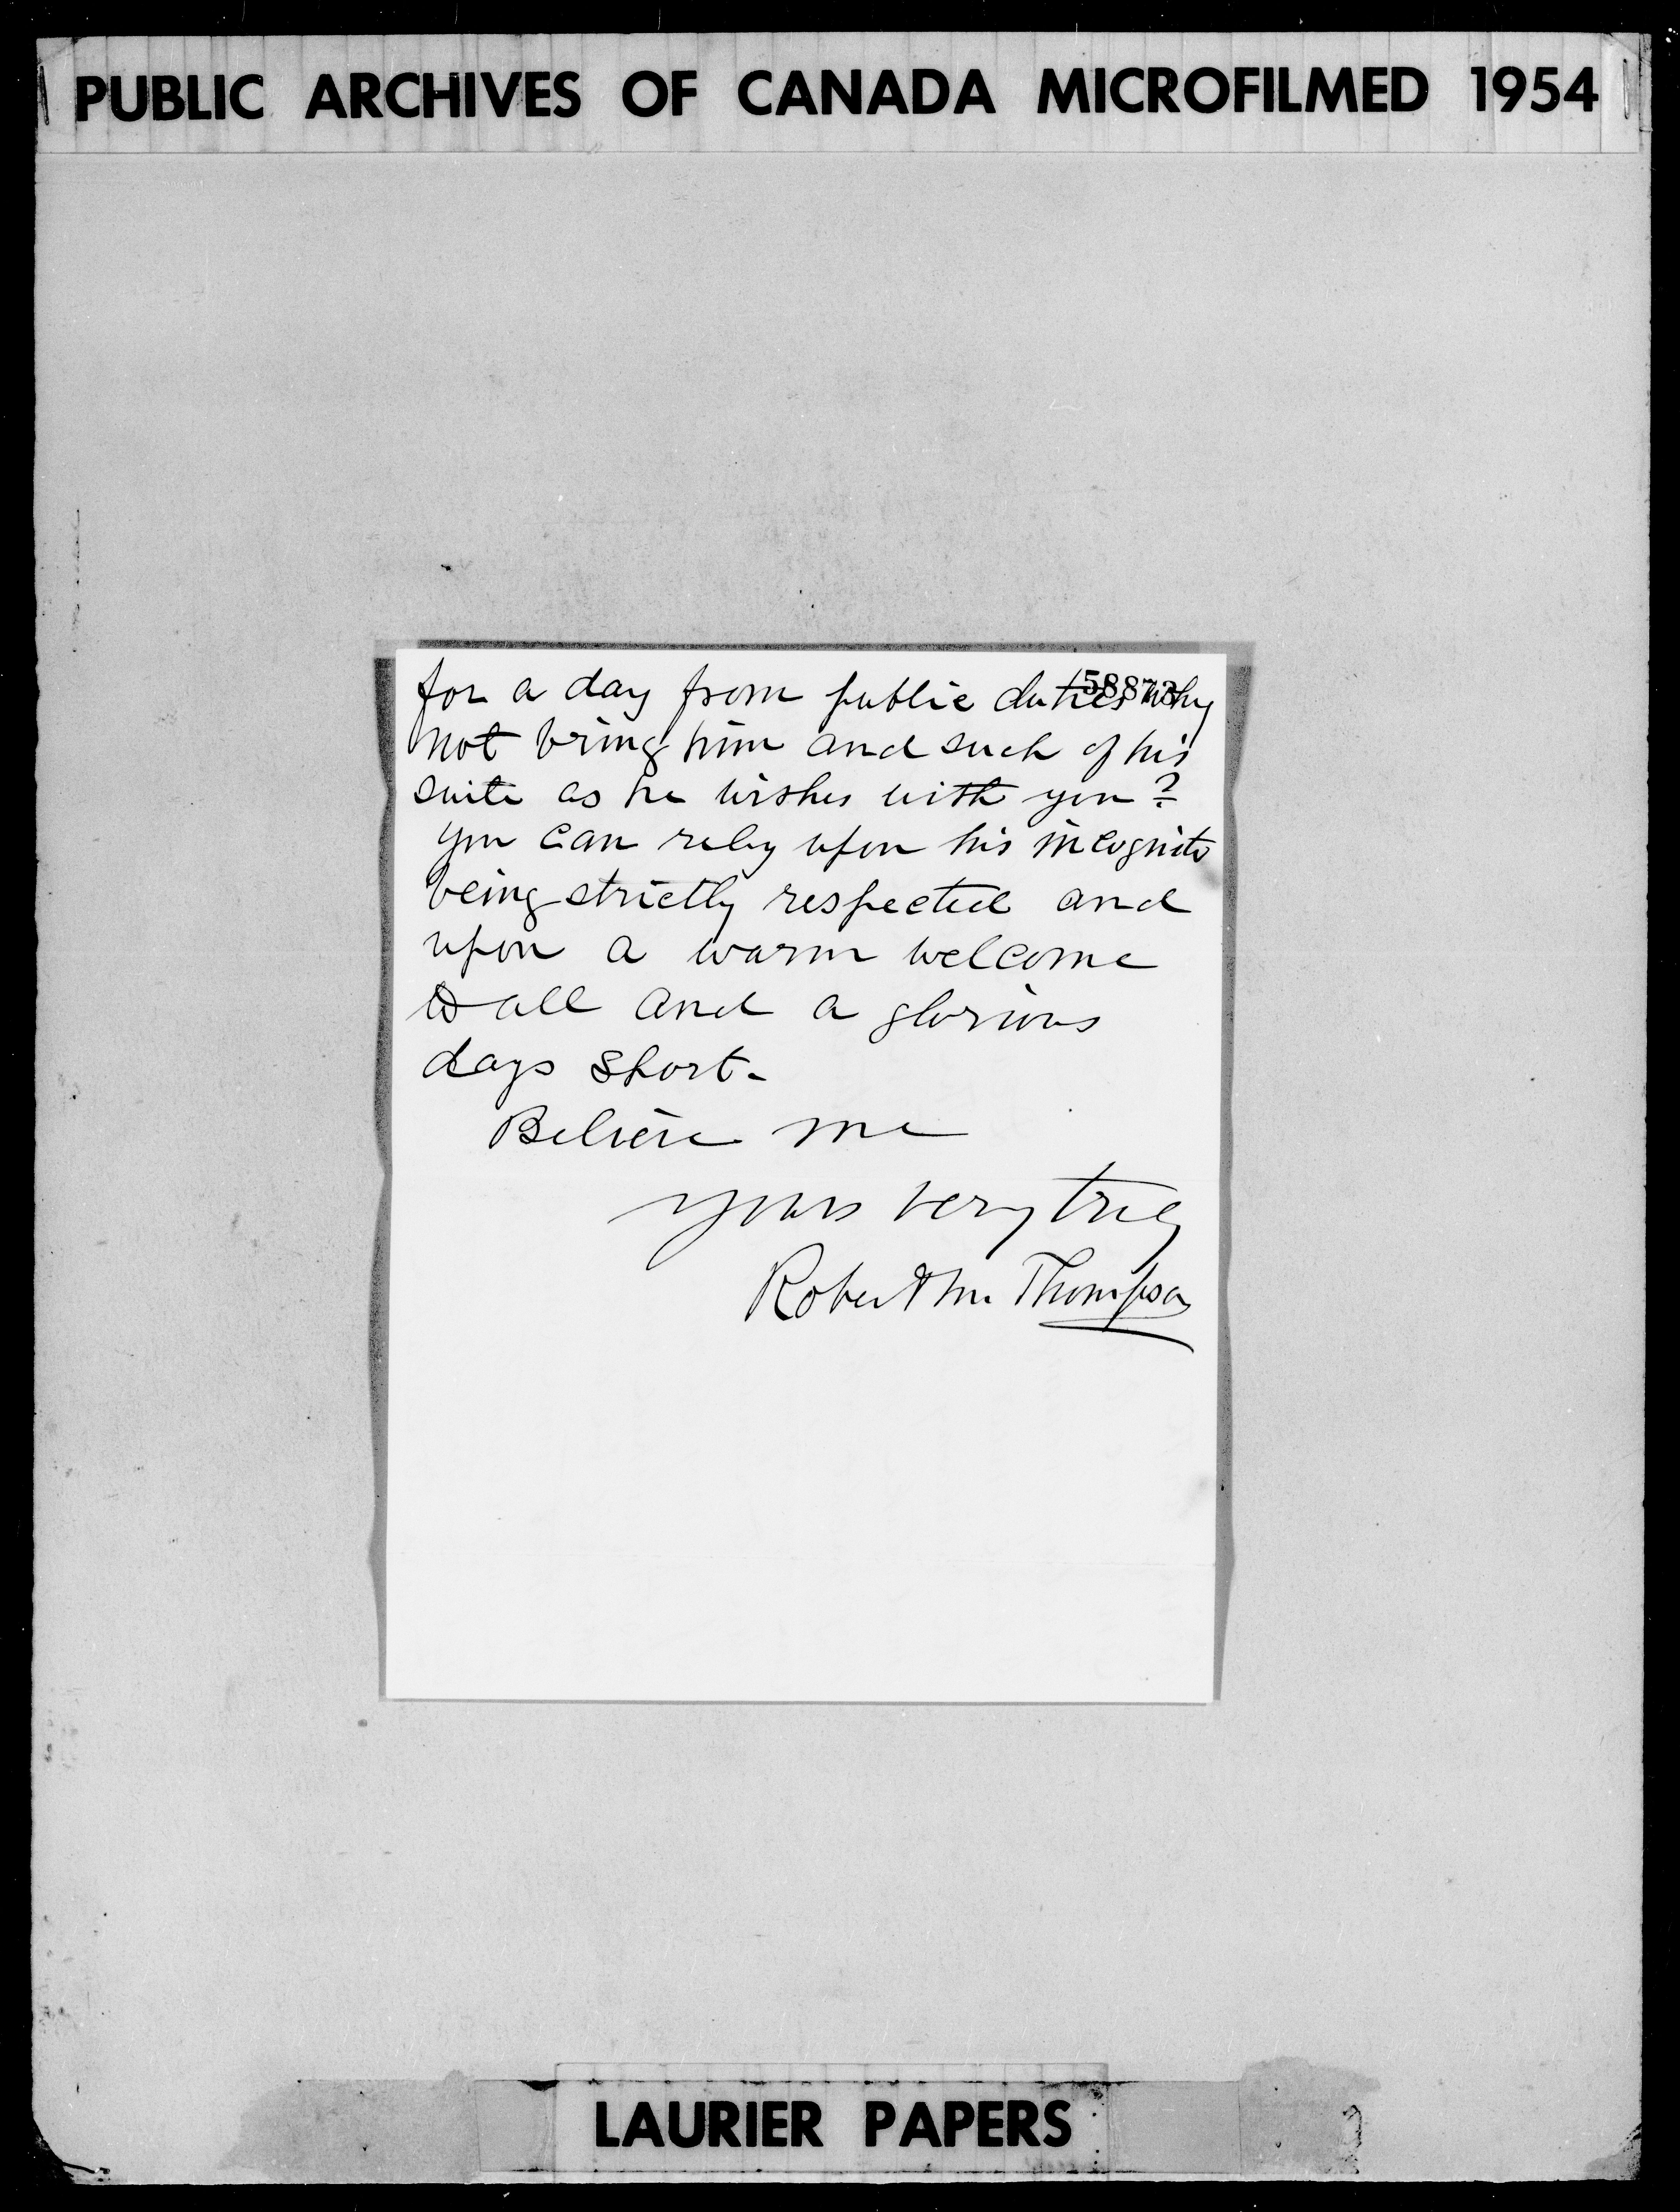 PUBLIC ARCHIVES OF CANADA MICROFILMED 1954
for a day from public duties why
not bring him and such of his
suite as he wishes with you?
you can rely upon his incognito
being strictly respected and
upon a warm welcome
to all and a glorious
days short.
Believe me
yours very truly
Robert M. Thompson
LAURIER PAPERS